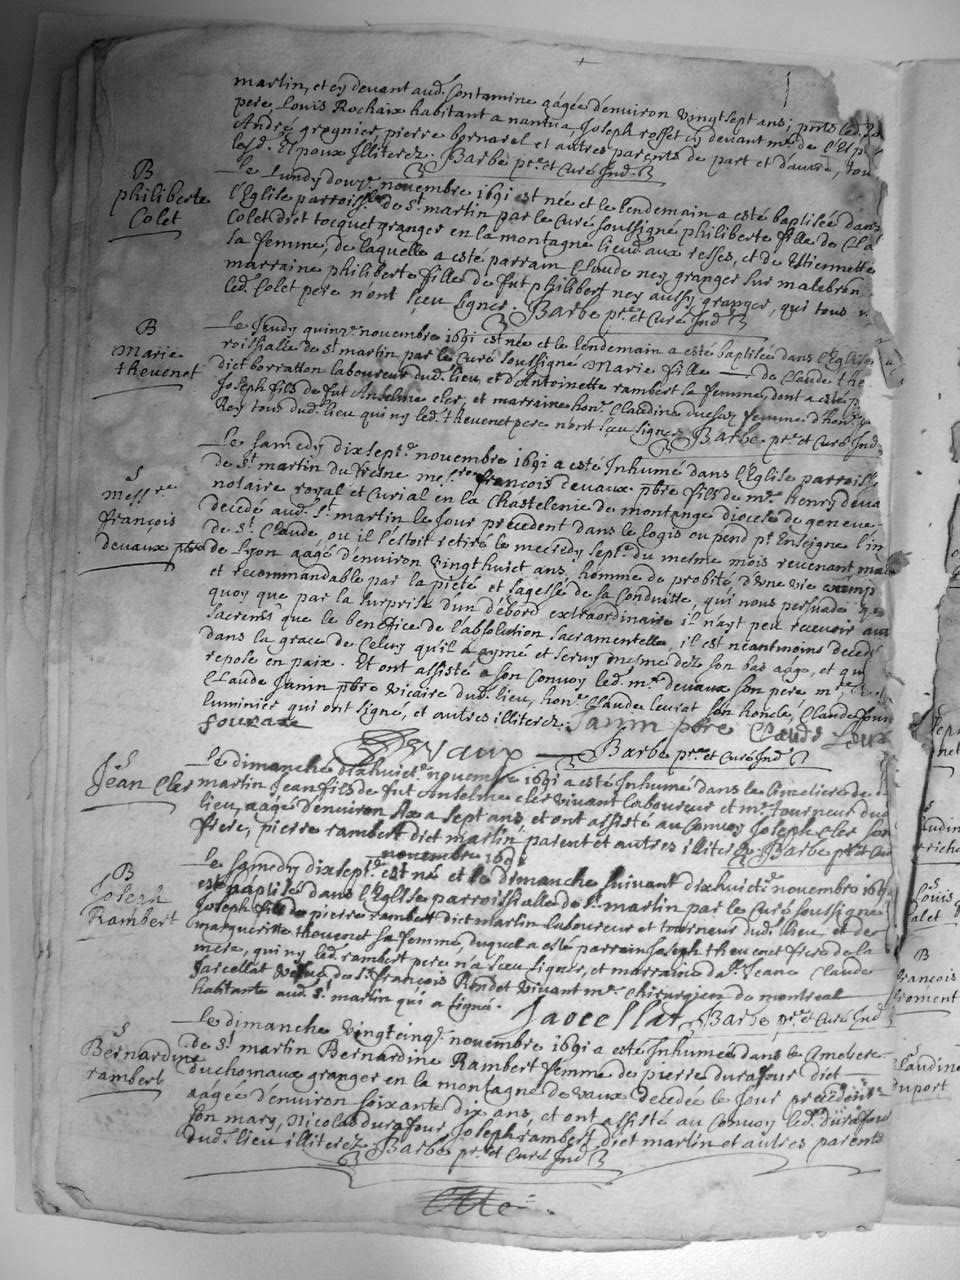 martin, et cy devant aud. sontamine aagée d'environ vingt sept ans; pnts led.
pere Louis Rochaix habitant a nantua, Joseph rosset cy devant me. de l'esp
André greynier, pierre bornarel et autres parents de part et d'autre, tou
lesd. Espoux Illiterez. Barbe ptre. et Curé Ind.
B
philiberte
Colet
Le Lundy douze. novembre 1691 est née et le lendemain a esté baptisée dans
l'Eglise parroissle. de St. martin par le Curé soussigné philiberte fille de Cla
Colet dict tocquet granger en la montagne lieud. aux resses, et de Estiennette
sa femme, de laquelle a esté parrain Claude ney granger sur malebron
marraine philiberte fille de fut philibert ney aussy granger, qui tous
led. Colet pere n'ont sceu signer. Barbe ptre. et Curé Ind
B
Marie
thevenet
Le Jeudy quinze. novembre 1691 est née et le lendemain a esté baptisée dans l'Eglise
roissialle de St. martin par le Curé soussigné Marie fille de Claude the
dict borratton laboureur dud. lieu, et d'Antoinette rambert sa femme, dont a esté p
Joseph fils de fut Anselme cler, et marraine honte. Claudine femme d'hon
Rey tous dud. lieu qui ny led. thevenet pere n'ont sceu signer. Barbe ptre. et Curé Ind
S
Messre.
françois
devaux pbre
Le samedy dix sept. novembre 1691 a esté Inhumé dans l'Eglise parroiss
de St. martin du fresne messre. françois devaux pbre fils de me. henry deva
notaire royal et Curial en la Chastelenie de montange diocese de geneve
decedé aud. St. martin le Jour precedent dans le logis ou pend pr. Enseigne l'im
de St. Claude, ou il s'estoit retiré le mecredy sept. du mesme mois revenant ma
de Lyon aagé d'environ vingt huict ans, homme de probité d'une vie exemp
et recommandable par la pieté et sagesse de sa Conduitte, qui nous persuade q
quoy que par la surprise d'un débord extraordinaire il n'ayt peu recevoir
sacremts. que le benefice de l'absolution sacramentelle, il est néantmoins decedé
dans la grace de Celuy qu'il a aymé et servy mesme dez son bas aage, et qu
repose en paix. Et ont assisté a son Convoy led. me. devaux son pere
Claude Janin pbre vicaire dud. lieu, honte. Claude leurat son honcle, Claude
luminier qui ont signé, et autres illiterez. Janin pbre Claude Leurat
fournax
Devaux Barbe ptre. et Curé Ind
S
Jean Cler
Le dimanche dix huict. novembre 1691 a esté Inhumé dans le Cimetiere de
martin Jean fils de fut Anselme cler vivant laboureur et me. tourneur dud
lieu, aagé d'environ six a sept ans, et ont assisté au Convoy Joseph Cler son
frere, pierre rambert dict martin, parent et autres illiterez. Barbe ptre. et Curé
novembre 1691
B
Joseph
Rambert
Le samedy dix sept. est né et le dimanche suivant dix huict. novembre 1691
est baptisé dans l'Eglise parroissialle de St. martin par le Curé soussigné
Joseph fils de pierre rambert dict martin laboureur et tourneur dud. lieu et de
marguerite thevenet sa femme, duquel a esté parrain Joseph thevenet frere de la
mere, qui ny led. rambert pere n'a sceu signer, et marraine dalle. Jeane Claude
Jarcellat vefve de Sr. françois Rendet vivant me. chirurgien de montreal
habitante aud. St. martin qui a signé. Jarcellat Barbe ptre. et Curé Ind
S
Bernardine
rambert
Le dimanche vingt cinq. novembre 1691 a esté Inhumée dans le Cimetiere
de St. martin Bernardine Rambert femme de pierre durafour dict
duchomaux granger en la montagne de vaux decedée le Jour precedent
aagée d'environ soixante dix ans, et ont assisté au Convoy led. durafour
son mary, Nicolas durafour, Joseph rambert dict martin et autres parents
dud. lieu illiterez. Barbe ptre. et Curé Ind
Louis
B
françois
froment
Claudine
duport